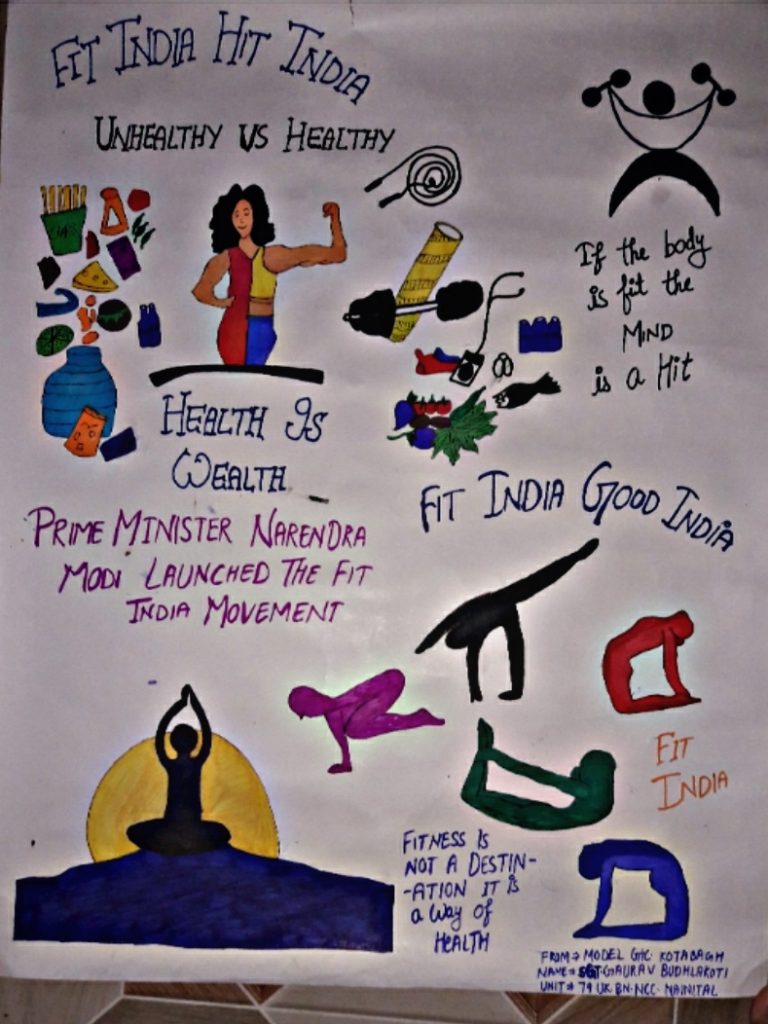 FIT INDIA HIT INDIA
UNHEALTHY VS HEALTHY
If the body
is fit the
MIND
is a Hit
HEALTH IS
WEALTH
FIT INDIA GOOD INDIA
PRIME MINISTER NARENDRA
MODI LAUNCHED THE FIT
INDIA MOVEMENT
FIT
INDIA
FITNESS IS
NOT A DESTIN-
-ATION IT IS
a Way of
HEALTH
FROM → MODEL GIC KOTABAGH
NAME → SGT GAURAV BUDHLAKOTI
UNIT → 79 UK BN NCC NAINITAL